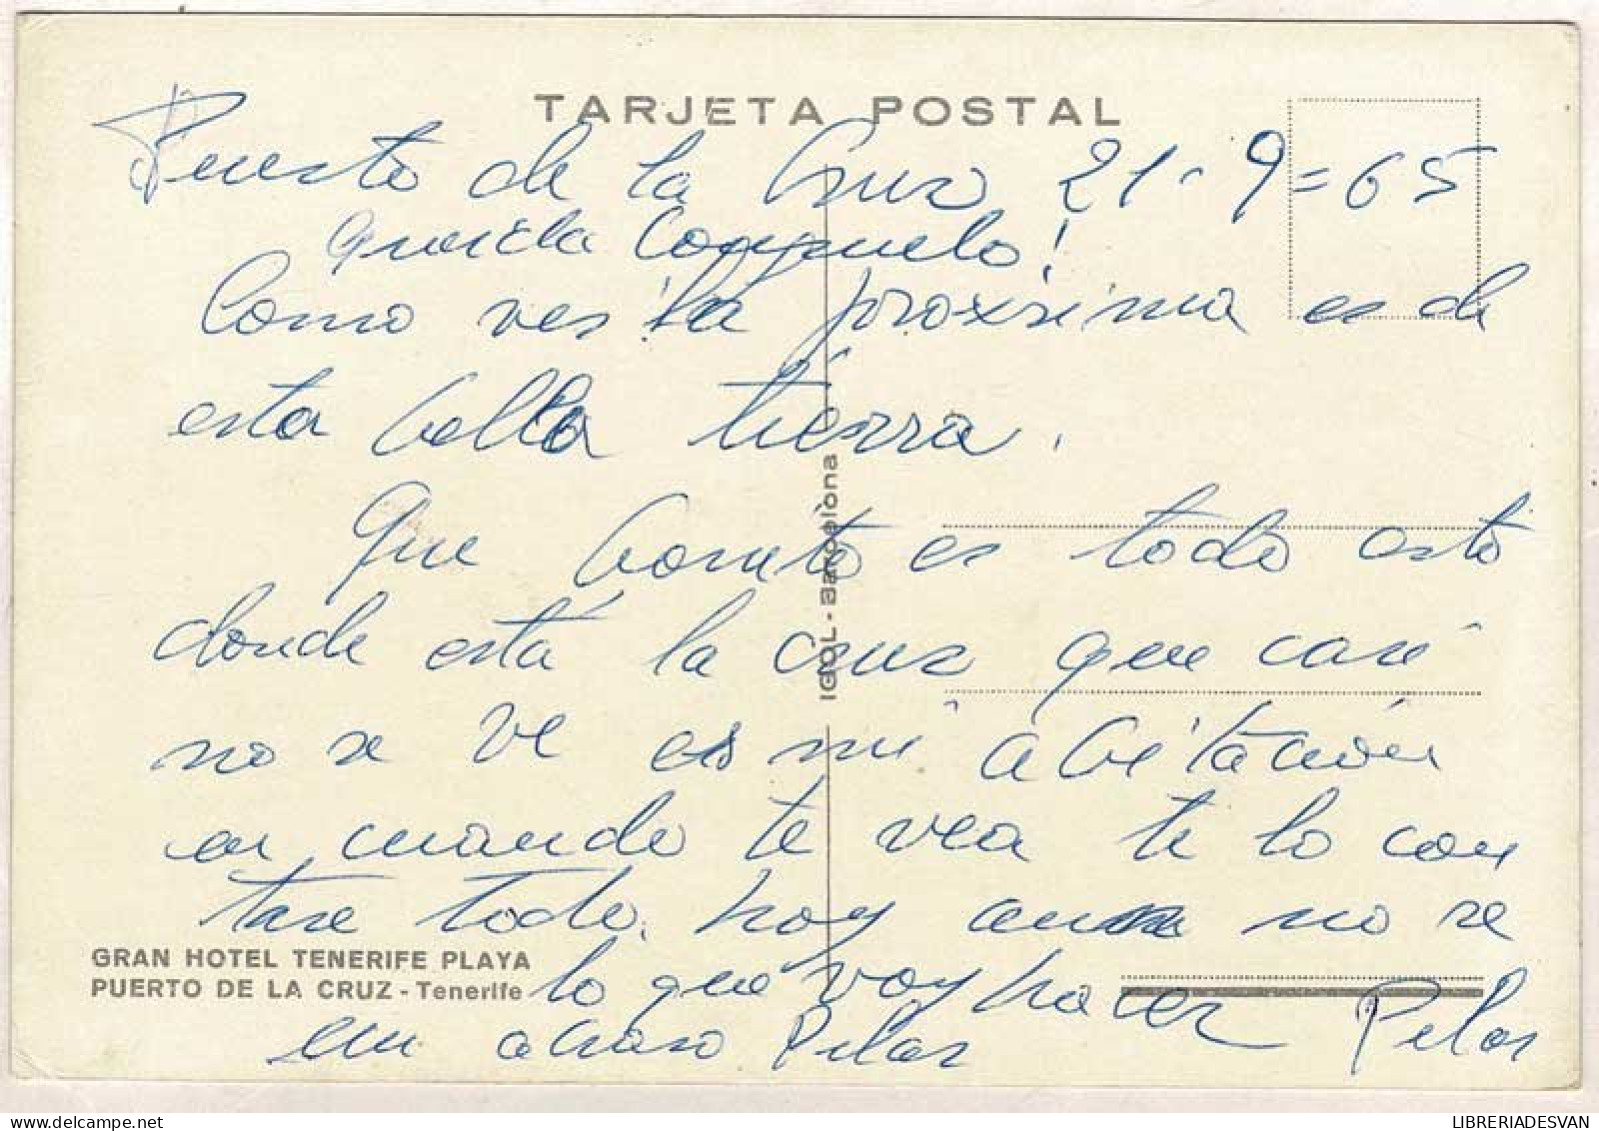 TARJETA POSTAL
Puerto de la Cruz 21-9=65
Querida Consuelo!
Como ves la proxsima es de
esta bella tierra.
Que bonito es todo esto
donde está la crus que casi
no se ve es mi abitación
cuando te vea te lo con
tare todo. hoy aun no se
lo que voy hacer Pilar
un abraso Pilar
GRAN HOTEL TENERIFE PLAYA
PUERTO DE LA CRUZ - Tenerife
IGOL - Barcelona
LIBRERIADESVAN